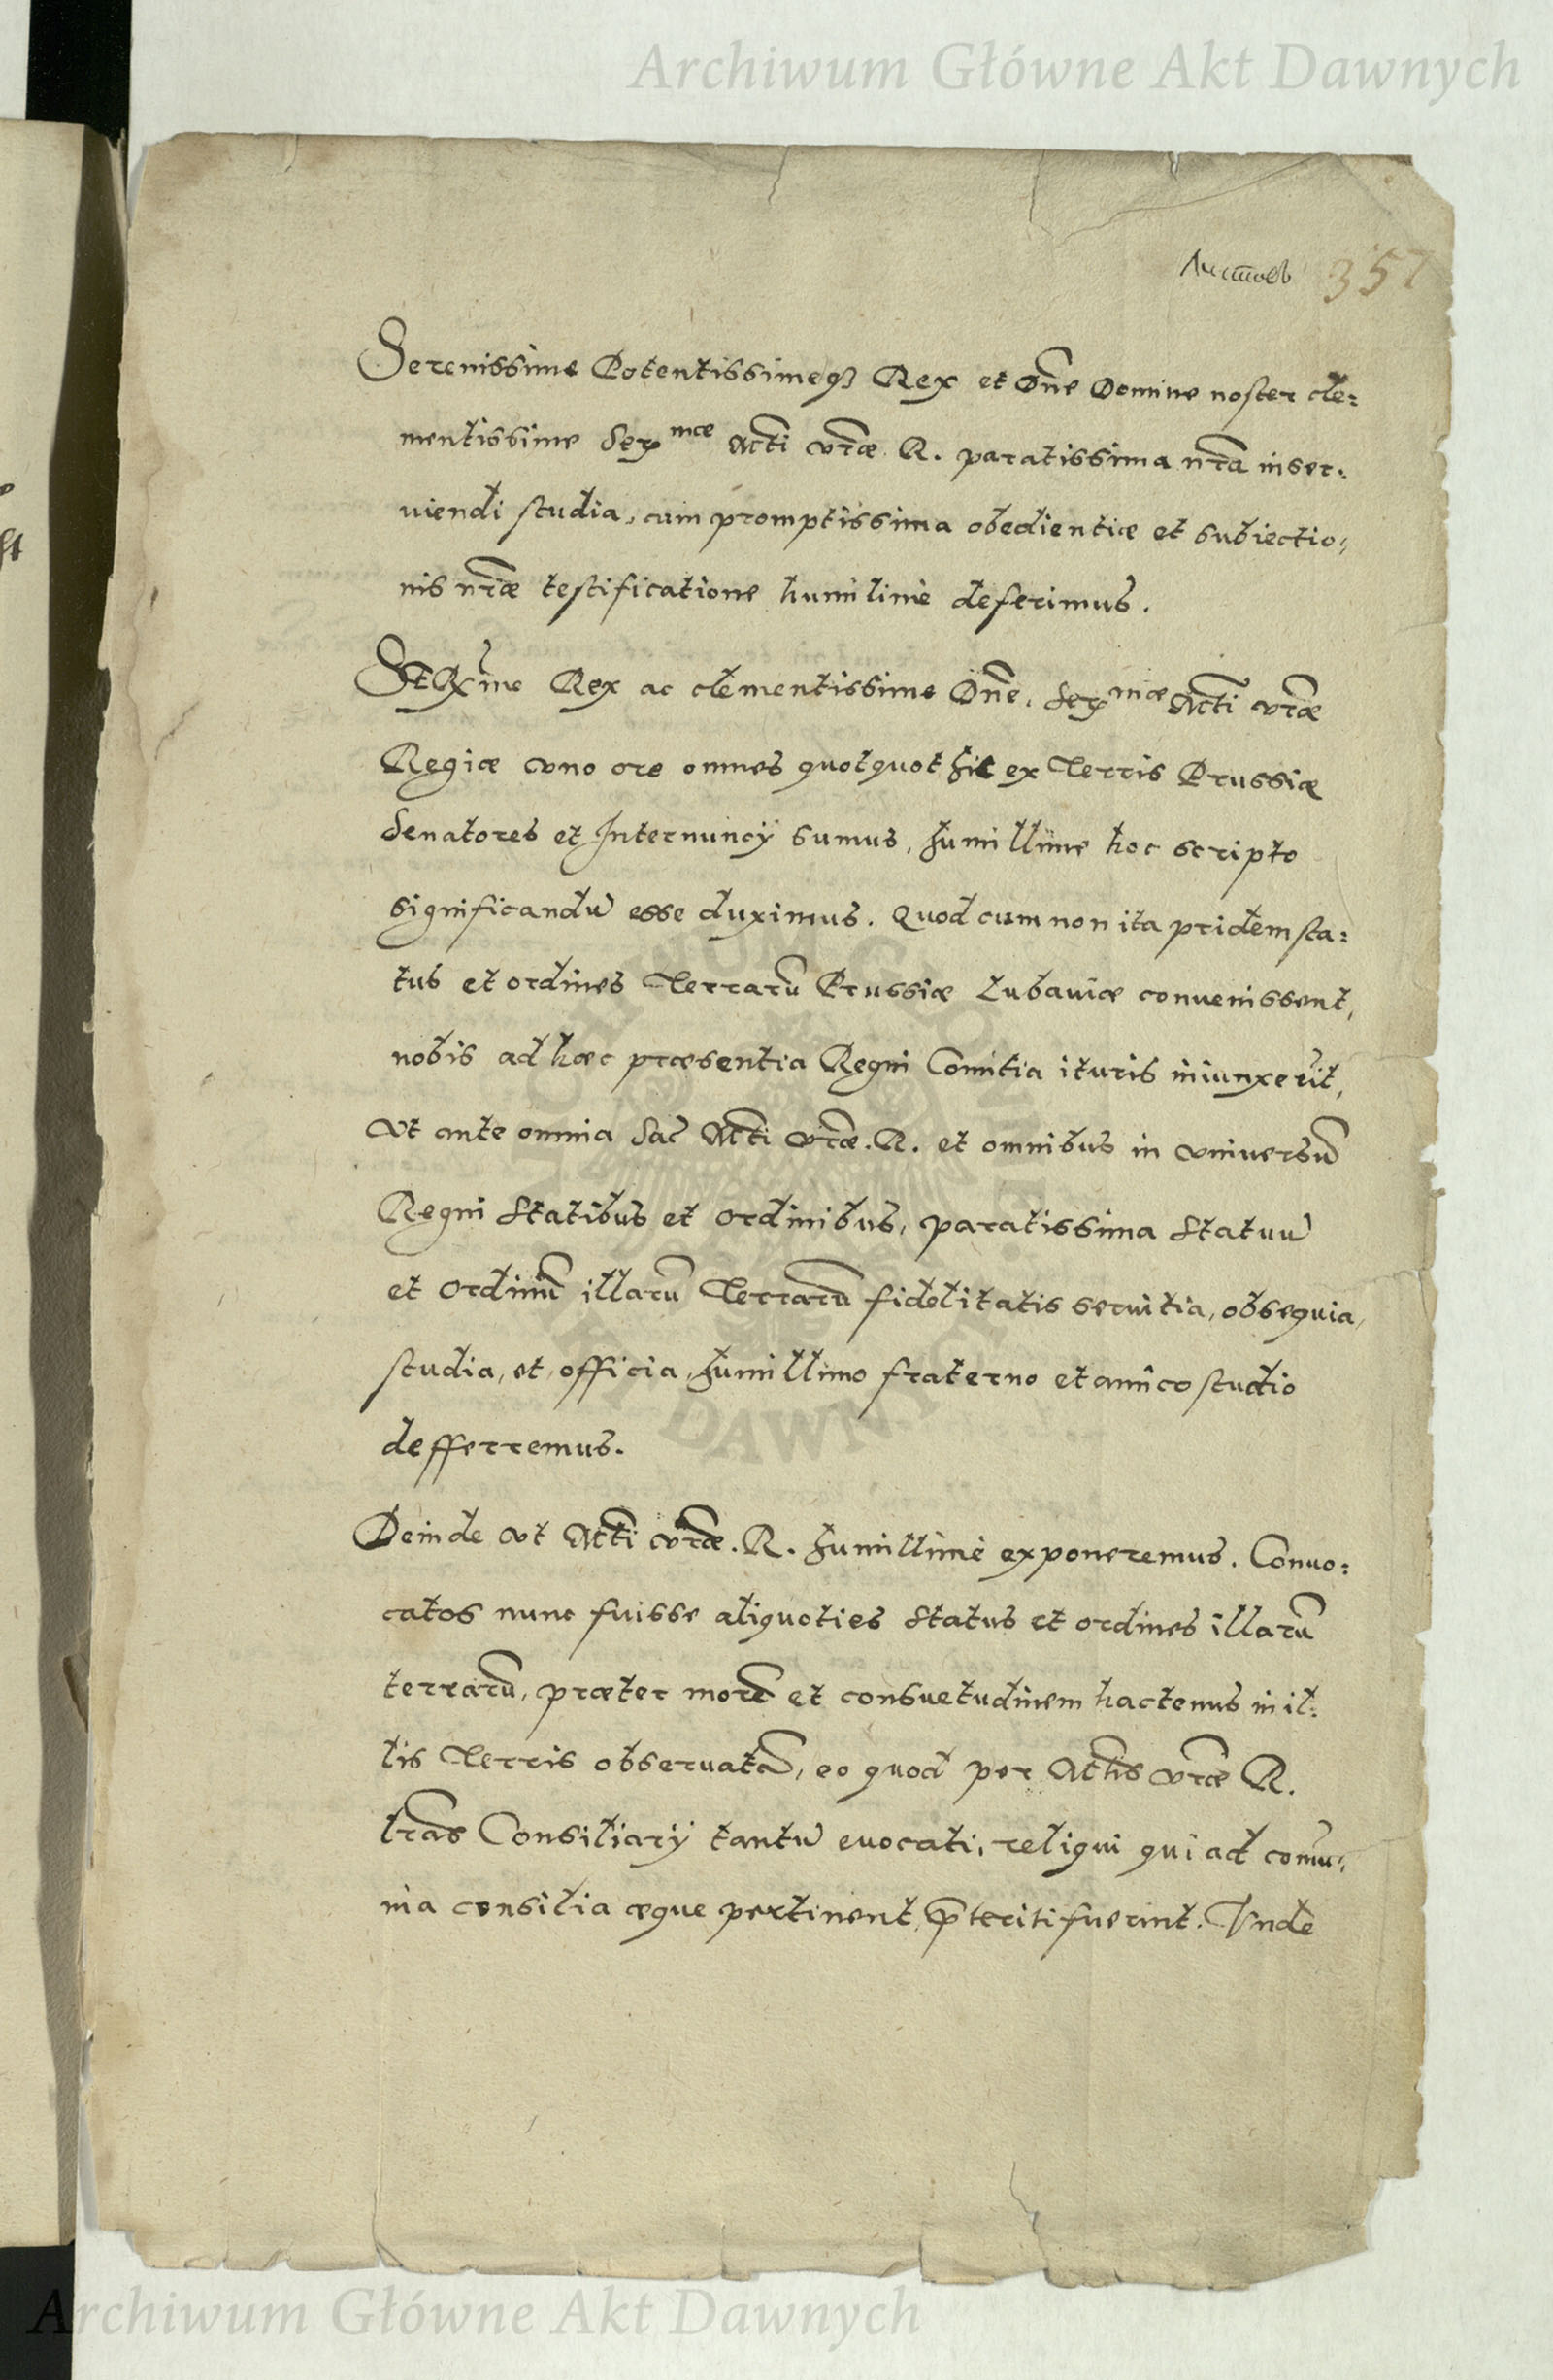 Archiwum Główne Akt Dawnych
Листовъ 357
Serenissime Potentissimeq3 Rex et Dne Domine noster cle=
mentissime Sermae Mtti vrae R. paratissima nra inser=
uiendi studia, cum promptissima obedientiae et subiectio=
nis nrae testificatione humilime deferimus.
Rex ac clementissime Dne, Sermae Mtti vrae
Regiae vno ore omnes quotquot hic ex Terris Prussiae
Senatores et Internuncÿ sumus, humillime hoc scripto
significandu esse duximus. Quod cum non ita pridem sta=
tus et ordines Terraru Prussiae Lubauiae conuenissent,
nobis ad haec praesentia Regni Comitia ituris iniunxerut,
Vt ante omnia Sac Mtti vrae. R. et omnibus in vniuersu
Regni Statibus et ordinibus, paratissima Statuu
et Ordinu illaru Terraru fidelitatis seruitia, obsequia,
studia, et officia, humillimo fraterno et amico studio
defferremus.
Deinde vt Mtti vrae. R. humillime exponeremus. Conuo=
catos nunc fuisse aliquoties Status et ordines illaru
terraru, praeter more et consuetudinem hactenus in il=
lis Terris obseruata, eo quod per Mttis vrae R.
lras Consiliarÿ tantu euocati, reliqui qui ad comu=
nia consilia aeque pertinent, pteriti fuerint. Vnde
Archiwum Główne Akt Dawnych